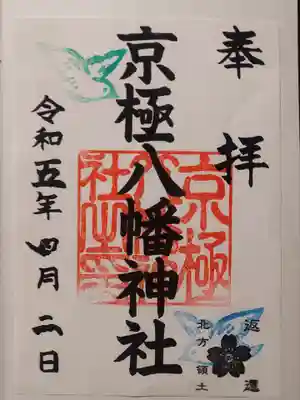 奉拝
京極八幡神社
京極八幡神社之印
令和五年四月二日
返還
北方領土